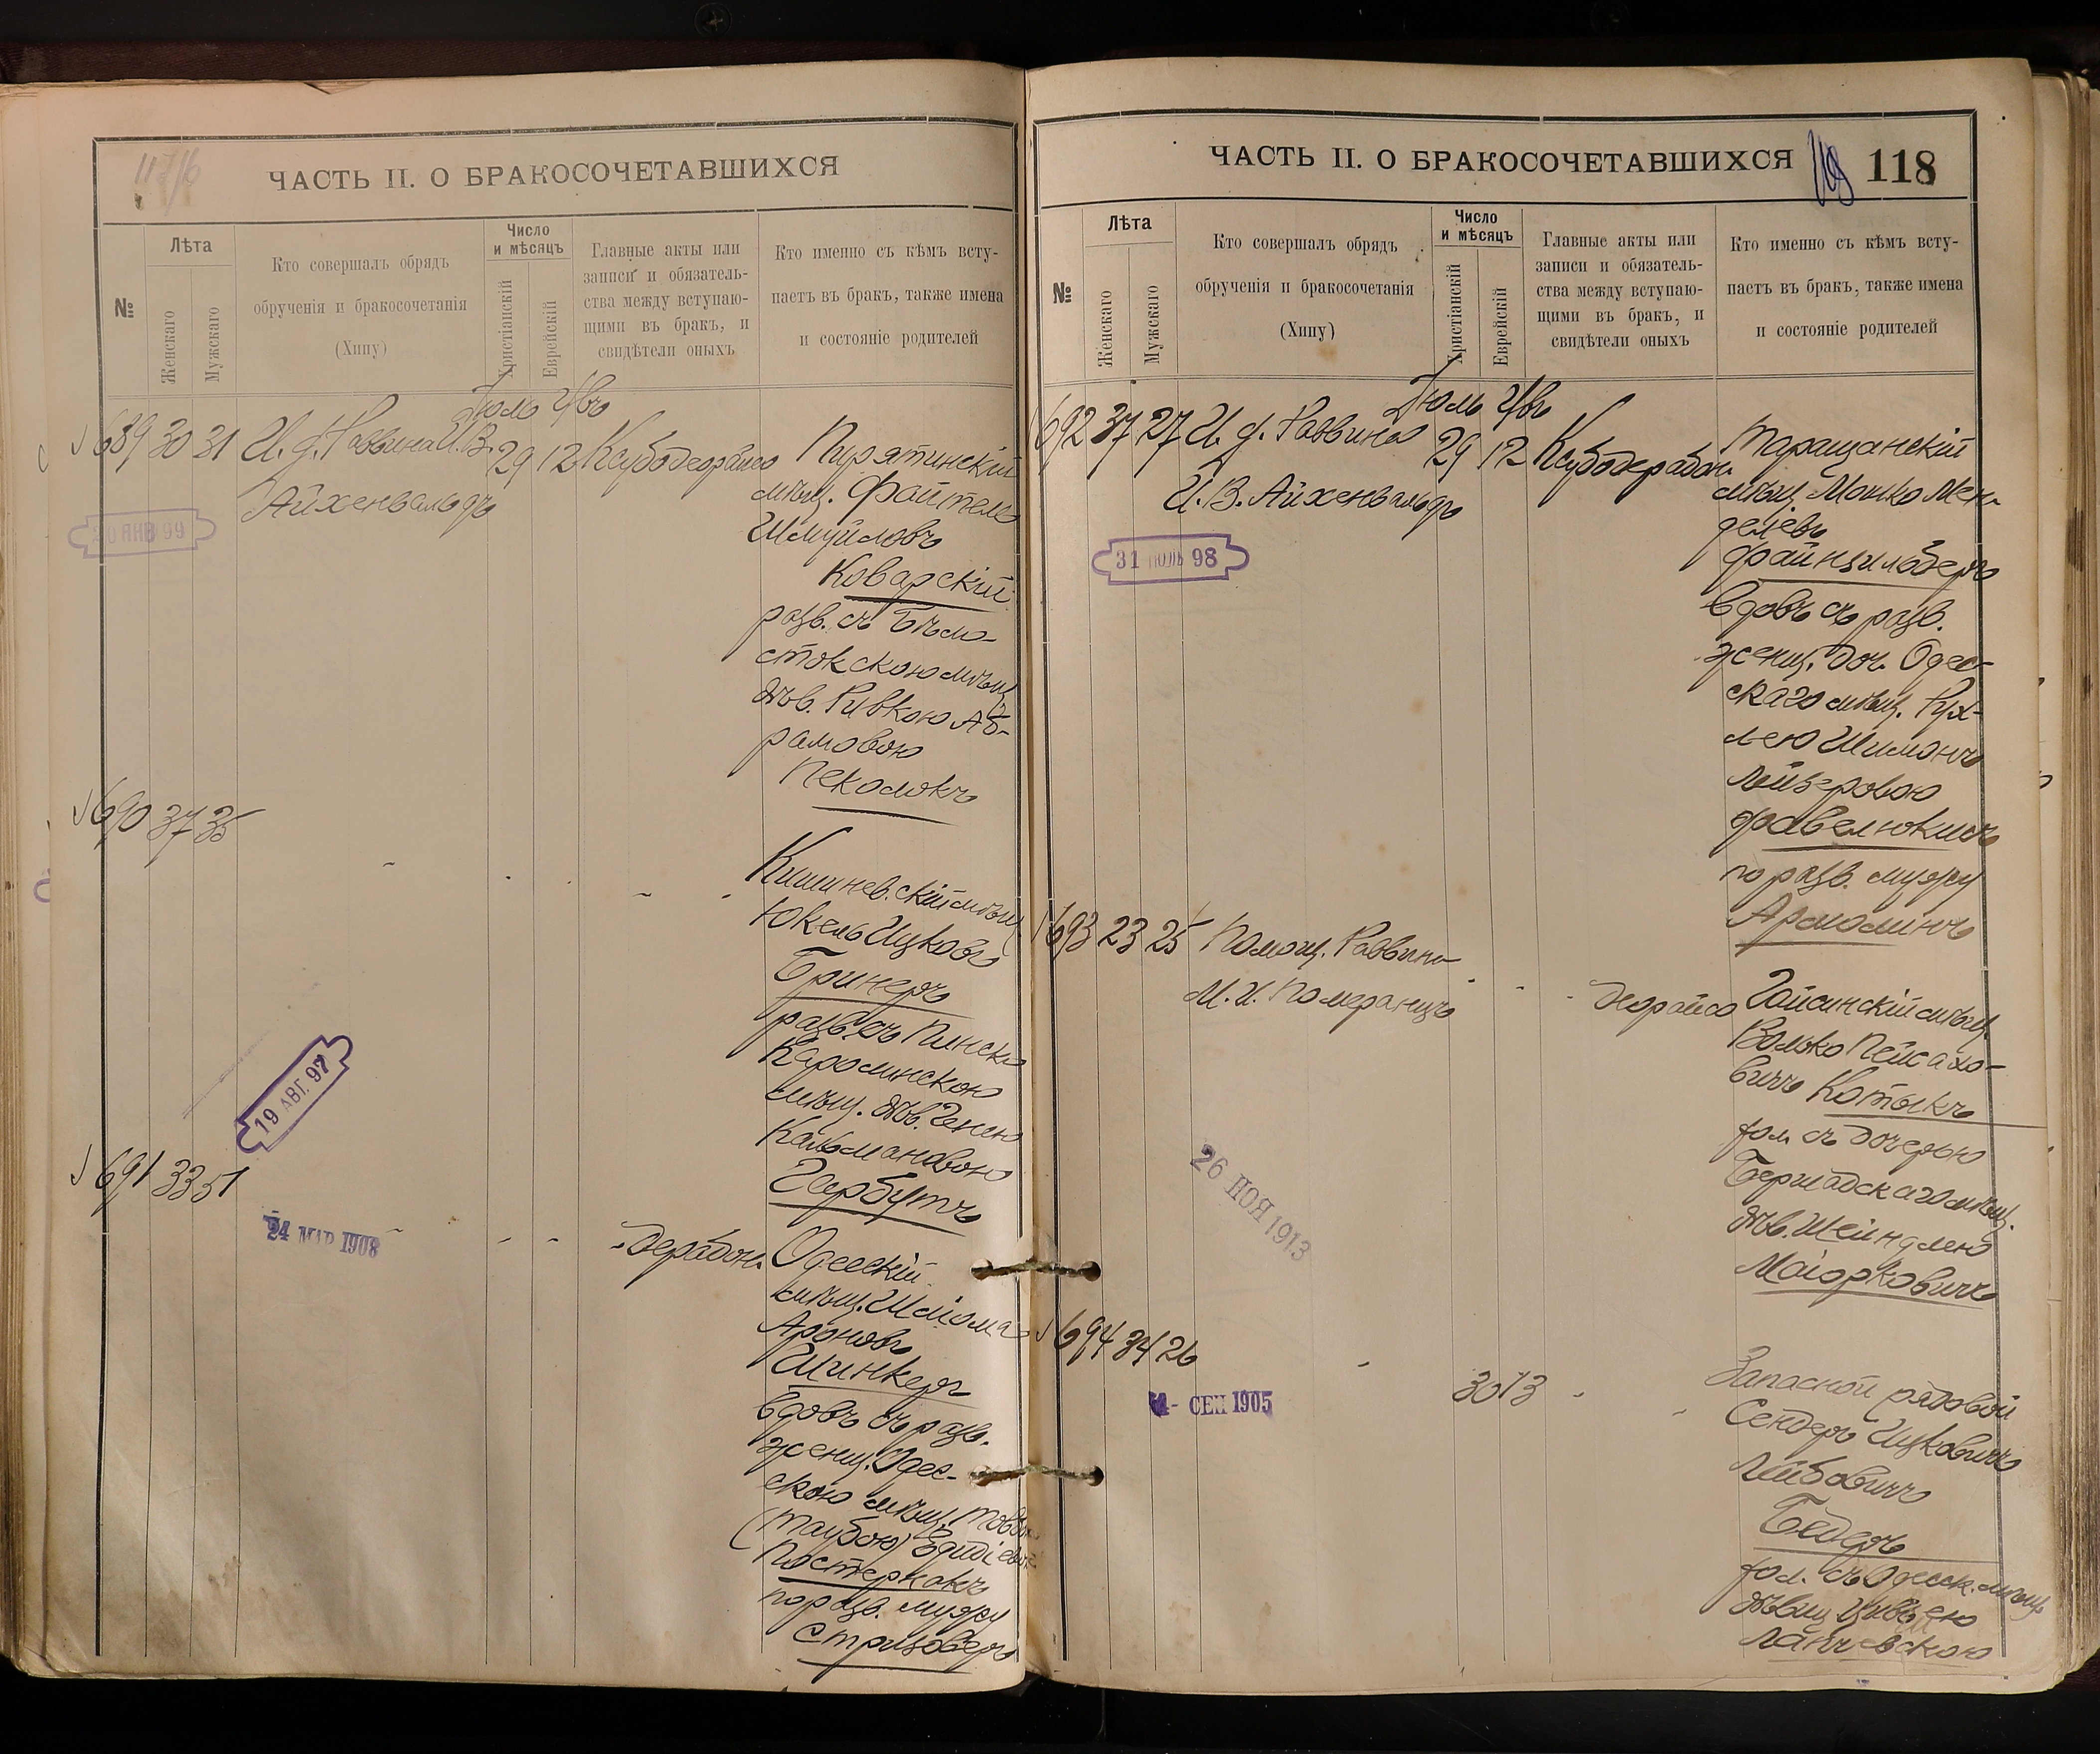 ЧАСТЬ II. О БРАКОСОЧЕТАВШИХСЯ
№
Лѣта
Женскаго
Мужскаго
Кто совершалъ обрядъ
обрученія и бракосочетанія
(Хипу)
Число
и мѣсяцъ
Христіанскій
Еврейскій
Главные акты или
записи и обязатель-
ства между вступаю-
щими въ бракъ, и
свидѣтели оныхъ
Кто именно съ кѣмъ всту-
паетъ въ бракъ, также имена
и состояніе родителей
Іюль
689 30 31 И. д. Раввина И. В. 29 12
Айхенвальдъ
20 ЯНВ 99
Пирятинскій
мѣщ. Файтель
Шмуйловъ
Коварскій
разв. съ Бѣло-
стокскою мѣщ.
дѣв. Ривкою Аб-
рамовою
Пеколокъ
690 37 35
Кишиневскій мѣщ.
Юкель Ицковъ
Бринеръ
разв. съ Пинско
Каролинскою
мѣщ. дѣв. Генею
Кальмановою
Гарбутъ
19 АВГ. 97
691 33 51
24 МАР 1908
Одесскій
мѣщ. Шлома
Ароновъ
Шинкеръ
вдовъ съ разв.
женщ. Одес-
скою мѣщ.
(Таубою)
Постернакъ
по разв. мужу
ЧАСТЬ II. О БРАКОСОЧЕТАВШИХСЯ
118
№
Лѣта
Женскаго
Мужскаго
Кто совершалъ обрядъ
обрученія и бракосочетанія
(Хипу)
Число
и мѣсяцъ
Христіанскій
Еврейскій
Главные акты или
записи и обязатель-
ства между вступаю-
щими въ бракъ, и
свидѣтели оныхъ
Кто именно съ кѣмъ всту-
паетъ въ бракъ, также имена
и состояніе родителей
Іюль
692 37 27 И. д. Раввина 29 12
И. В. Айхенвальдъ
31 ІЮЛЬ 98
Таращанскій
мѣщ. Мошко Мен-
делевъ
Файнзильберъ
вдовъ съ разв.
женщ. доч. Одес-
скаго мѣщ. Рух-
лею Шимонъ
Лейзеровою
по разв. мужу
693 23 25 Помощ. Раввина
М. И. Померанцъ
Гайсинскій мѣщ.
Волько Пейсахо-
вичъ Котыкъ
хол. съ дочерью
Бершадскаго мѣщ.
дѣв. Шейндлею
Маіорковичъ
26 НОЯ 1913
694 34 26
30 13
СЕН 1905
Запасной рядовой
Сендеръ Ицковичъ
Лейбовичъ
Бедеръ
хол. съ Одесск. мѣщ.
дѣвиц. Цивьею